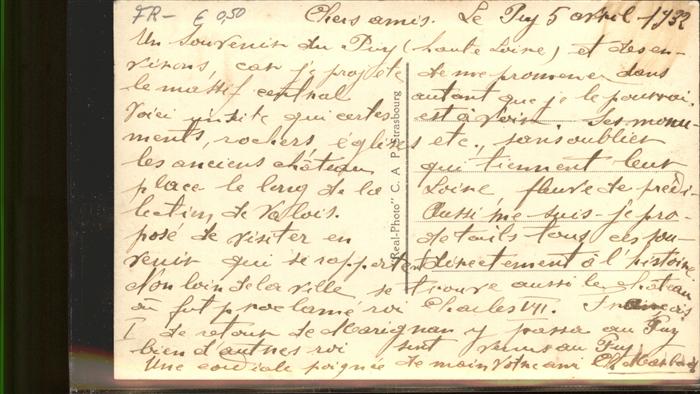 FR- € 0,50
Chers amis. Le Puy 5 avril-1932
Un Souvenir du Puy (haute Loire) et des en-
virons, car je projete de me promener dans
le massif central autant que je le pourrai
Voici un site qui certes est à voir. Ses monu-
ments, rochers, églises etc., sans oublier
les anciens château qui tiennent leur
place le long de la Loire, fleuve de prédi-
lection de Valois. Aussi me suis-je pro-
posé de visiter en détails tous ces sou-
venir qui se rapportent directement à l'histoire
Non loin de la ville se trouve aussi le château
où fut proclamé roi Charles VII. François
I de retour de Marignan y passa au Puy
bien d'autres roi sont venus au Puy
Une cordiale poignée de main votre ami
"Real-Photo" C. A. P. Strasbourg